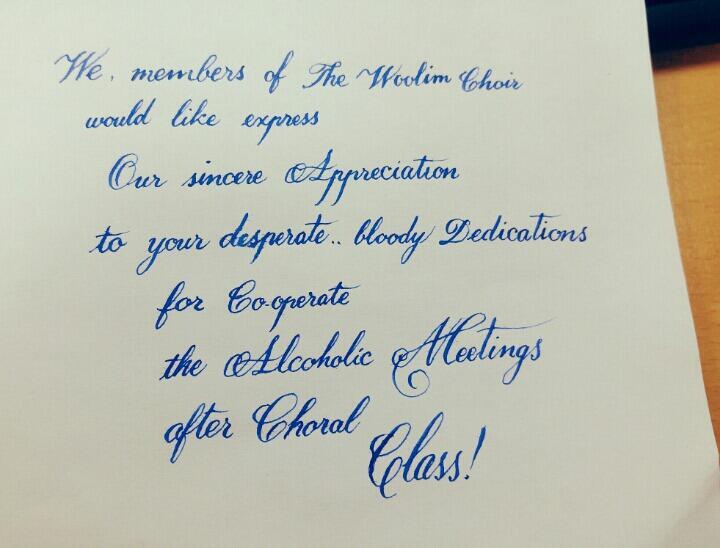 We, members of The Woolim Choir
would like express
Our sincere Appreciation
to your desperate.. bloody Dedications
for Co-operate
the Alcoholic Meetings
after Choral
Class!